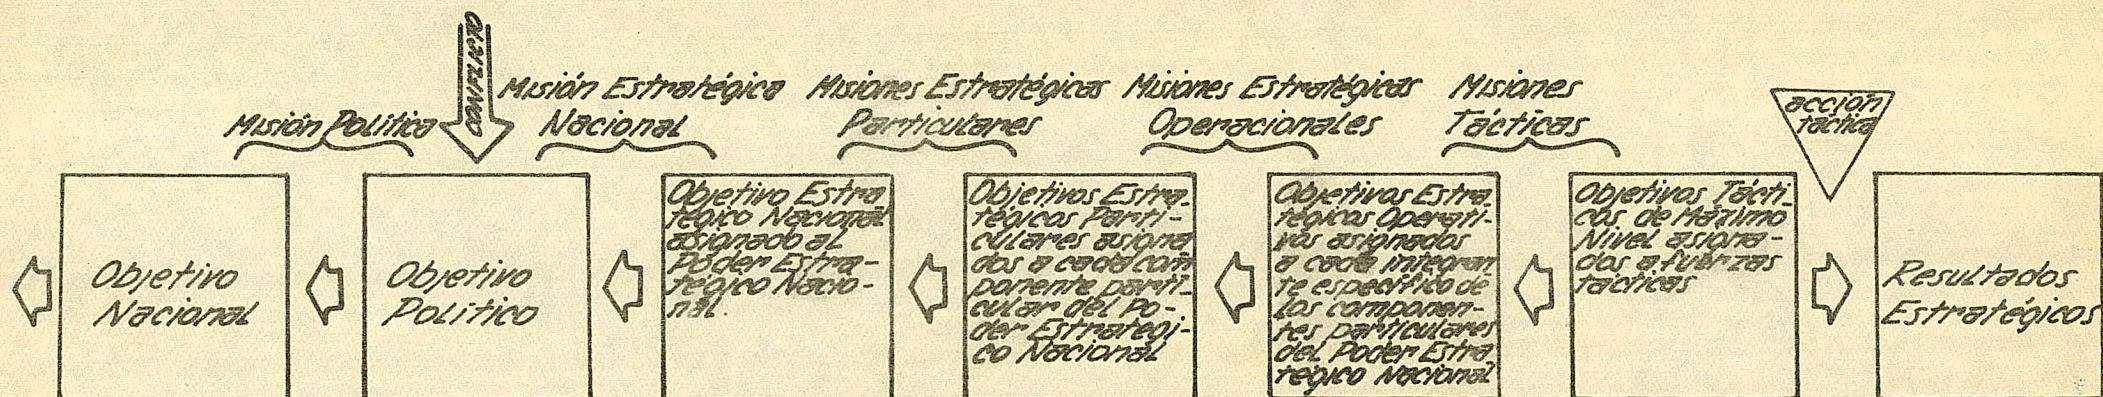 CONFLICTO
Misión Política
Misión Estratégica
Nacional
Misiones Estratégicas
Particulares
Misiones Estratégicas
Operacionales
Misiones
Tácticas
acción
táctica
Objetivo
Nacional
Objetivo
Político
Objetivo Estra
tégico Nacional
asignado al
Poder Estra-
tégico Nacio-
nal.
Objetivos Estra-
tégicos Parti-
culares asigna
dos a cada com
ponente parti-
cular del Po-
der Estratégi-
co Nacional
Objetivos Estra-
tégicos Operati-
vos asignados
a cada integran
te específico de
los componen-
tes particulares
del Poder Estra
tégico Nacional
Objetivos Tácti-
cos de Máximo
Nivel asigna-
dos a fuerzas
tácticas
Resultados
Estratégicos